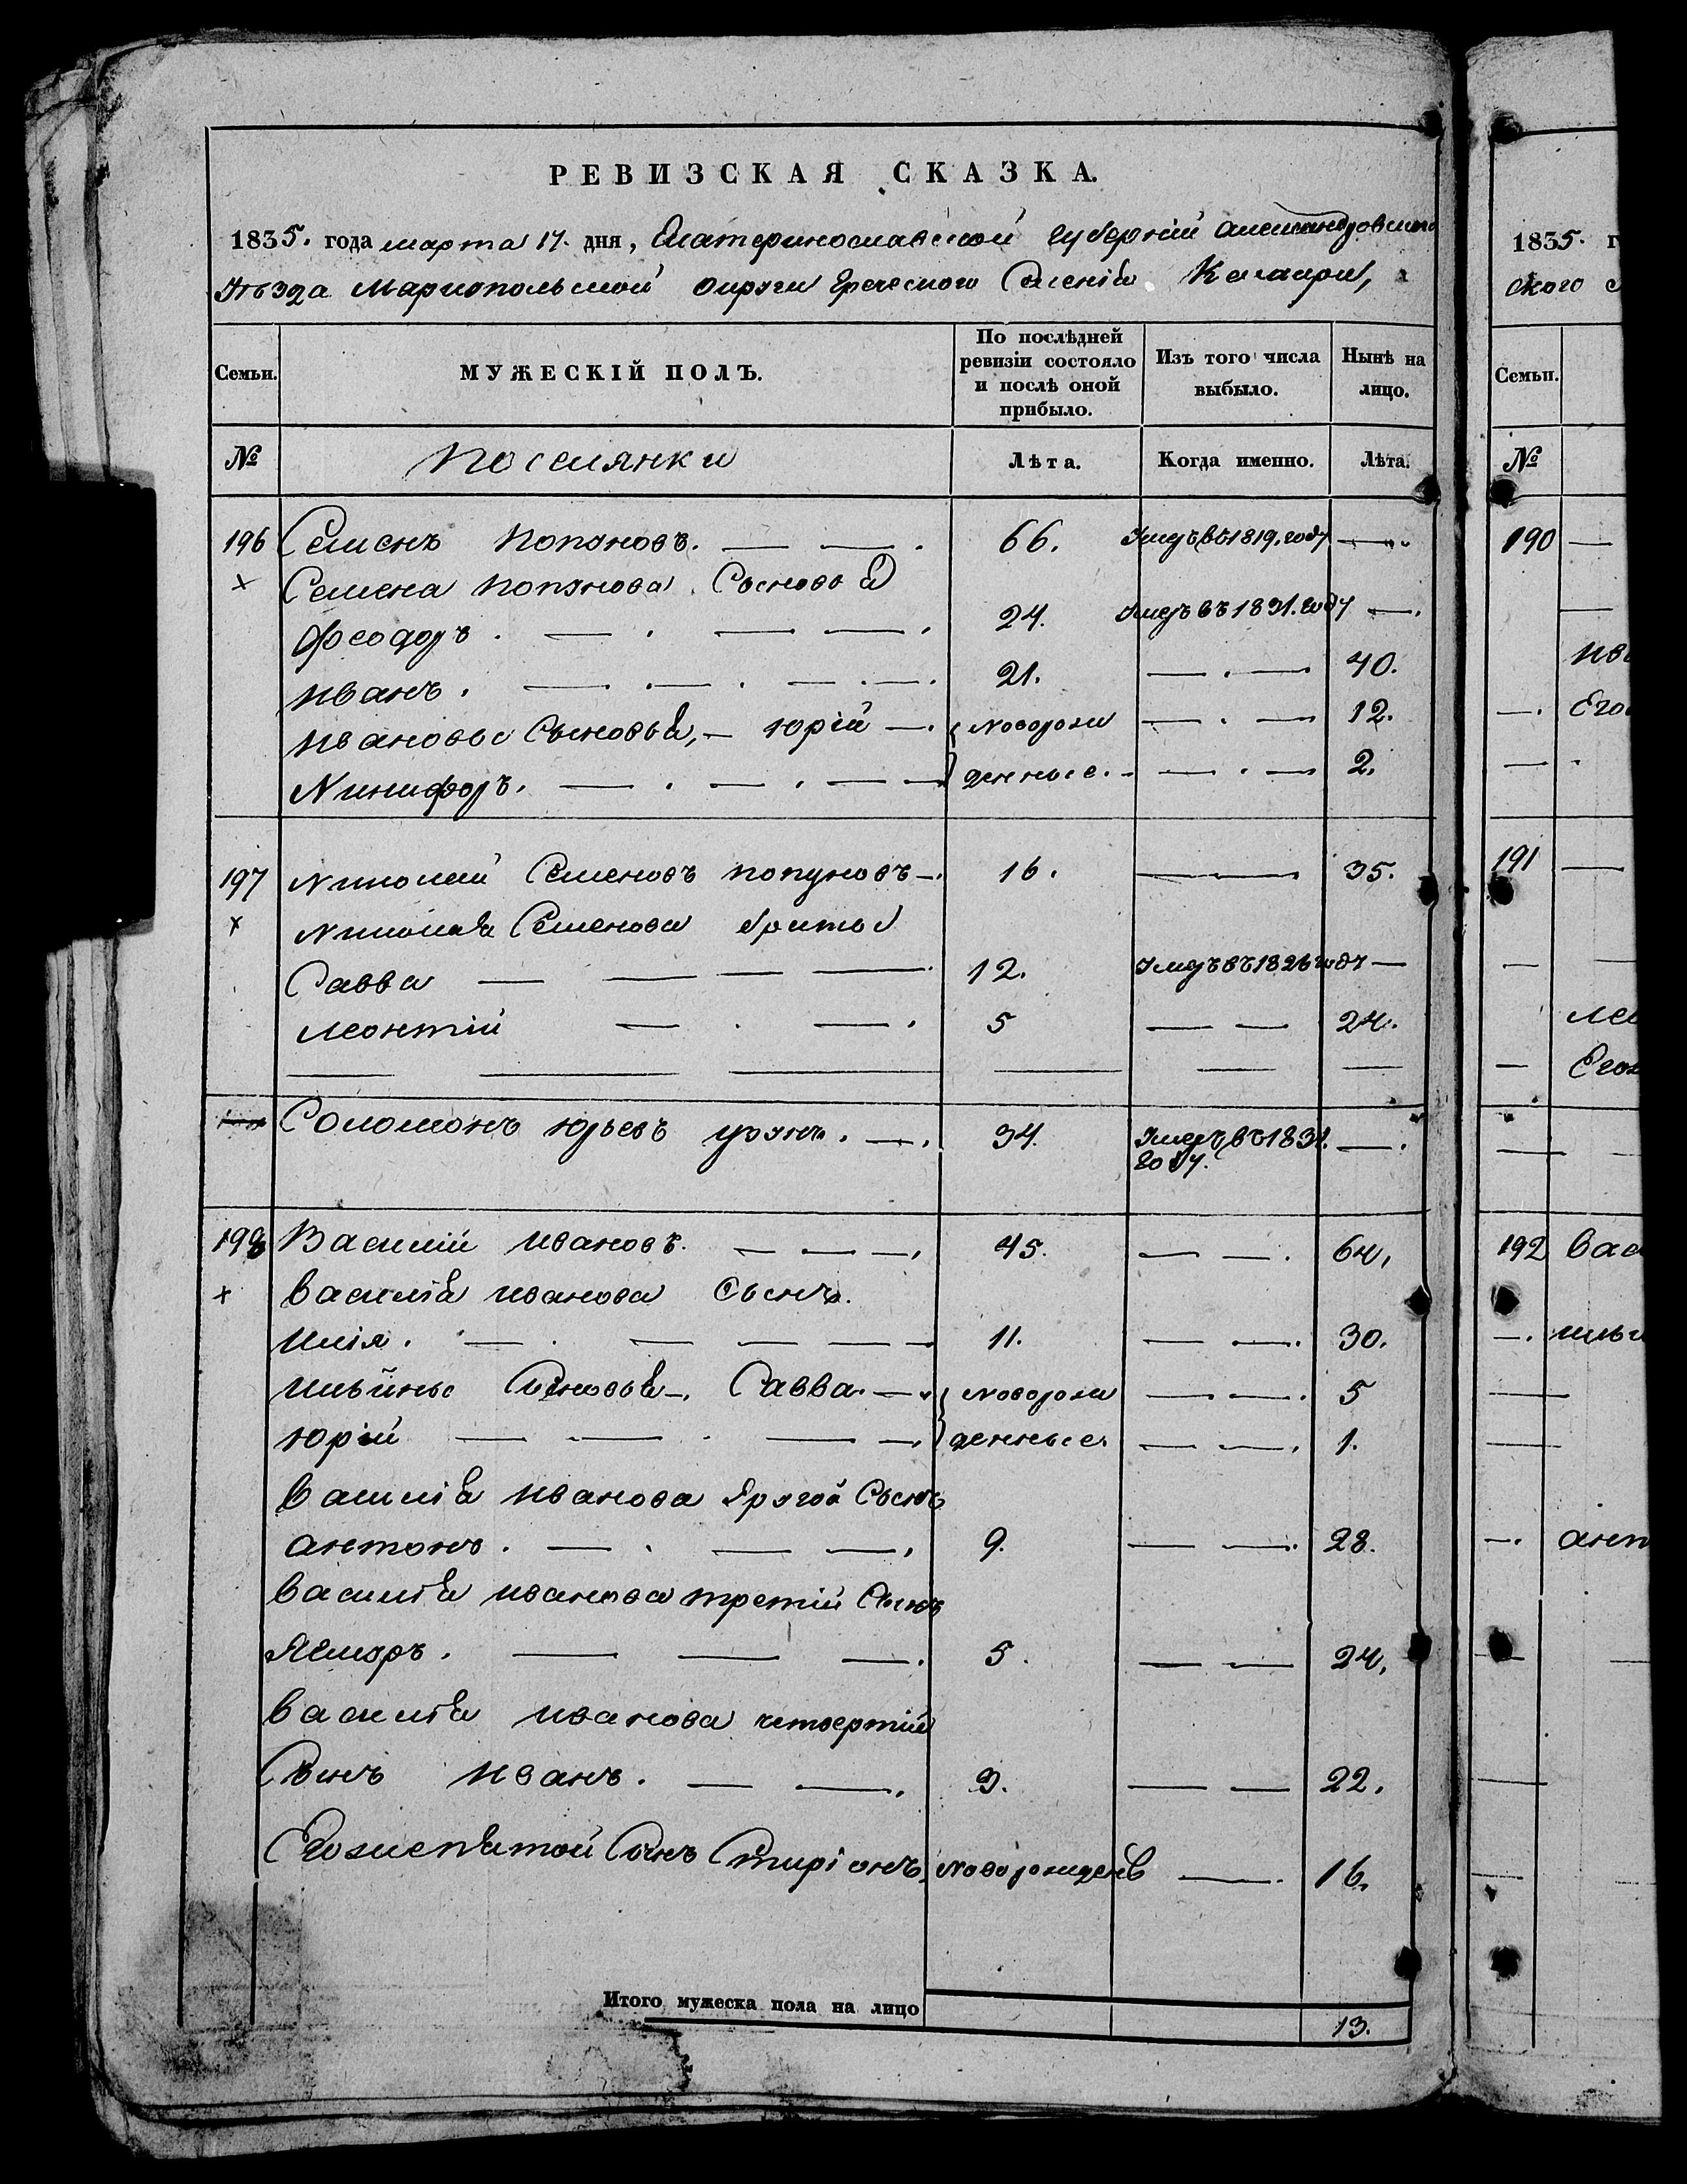 РЕВИЗСКАЯ СКАЗКА.
1835. года марта 17. дня, Екатеринославской губерніи Александровского
Уѣзда Маріюпольской округи Греческого Селенія Камары,
Семьи. МУЖЕСКІЙ ПОЛЪ. По послѣдней ревизіи состояло и послѣ оной прибыло. Изъ того числа выбыло. Нынѣ на лицо.
№ Поселянки Лѣта. Когда именно. Лѣта.
196 Семенъ Попуновъ. 66. Умеръ въ 1819. году
× Семена Попунова Сыновья
Феодоръ. 24. Умеръ въ 1831. году
Иванъ. 21. 40.
Ивановы Сыновья, Юрій Новорож 12.
Никифоръ. денные. 2.
197 Николай Семеновъ Попуновъ 16. 35.
× Николая Семенова братья
Савва 12. Умеръ въ 1826 году
Леонтій 5 24.
Соломонъ Юрьевъ 34. Умеръ въ 1831.
году.
198 Василій Ивановъ. 45. 64.
× Василія Иванова Сынъ.
Илія. 11. 30.
Ильины Сыновья, Савва. Новорож 5
Юрій денные. 1.
Василія Иванова другой Сынъ
Антонъ. 9. 28.
Василія Иванова третій Сынъ
5. 24.
Василія Иванова четвертій
Сынъ Иванъ. 3. 22.
Егоже пятой Сынъ Спиріонъ. Новорожденъ 16.
Итого мужеска пола на лицо 13.
1835. г
ского с
Семьи.
№
190
Ива
Его
191
Лео
Егож
192 Вас
Ильи
Анто